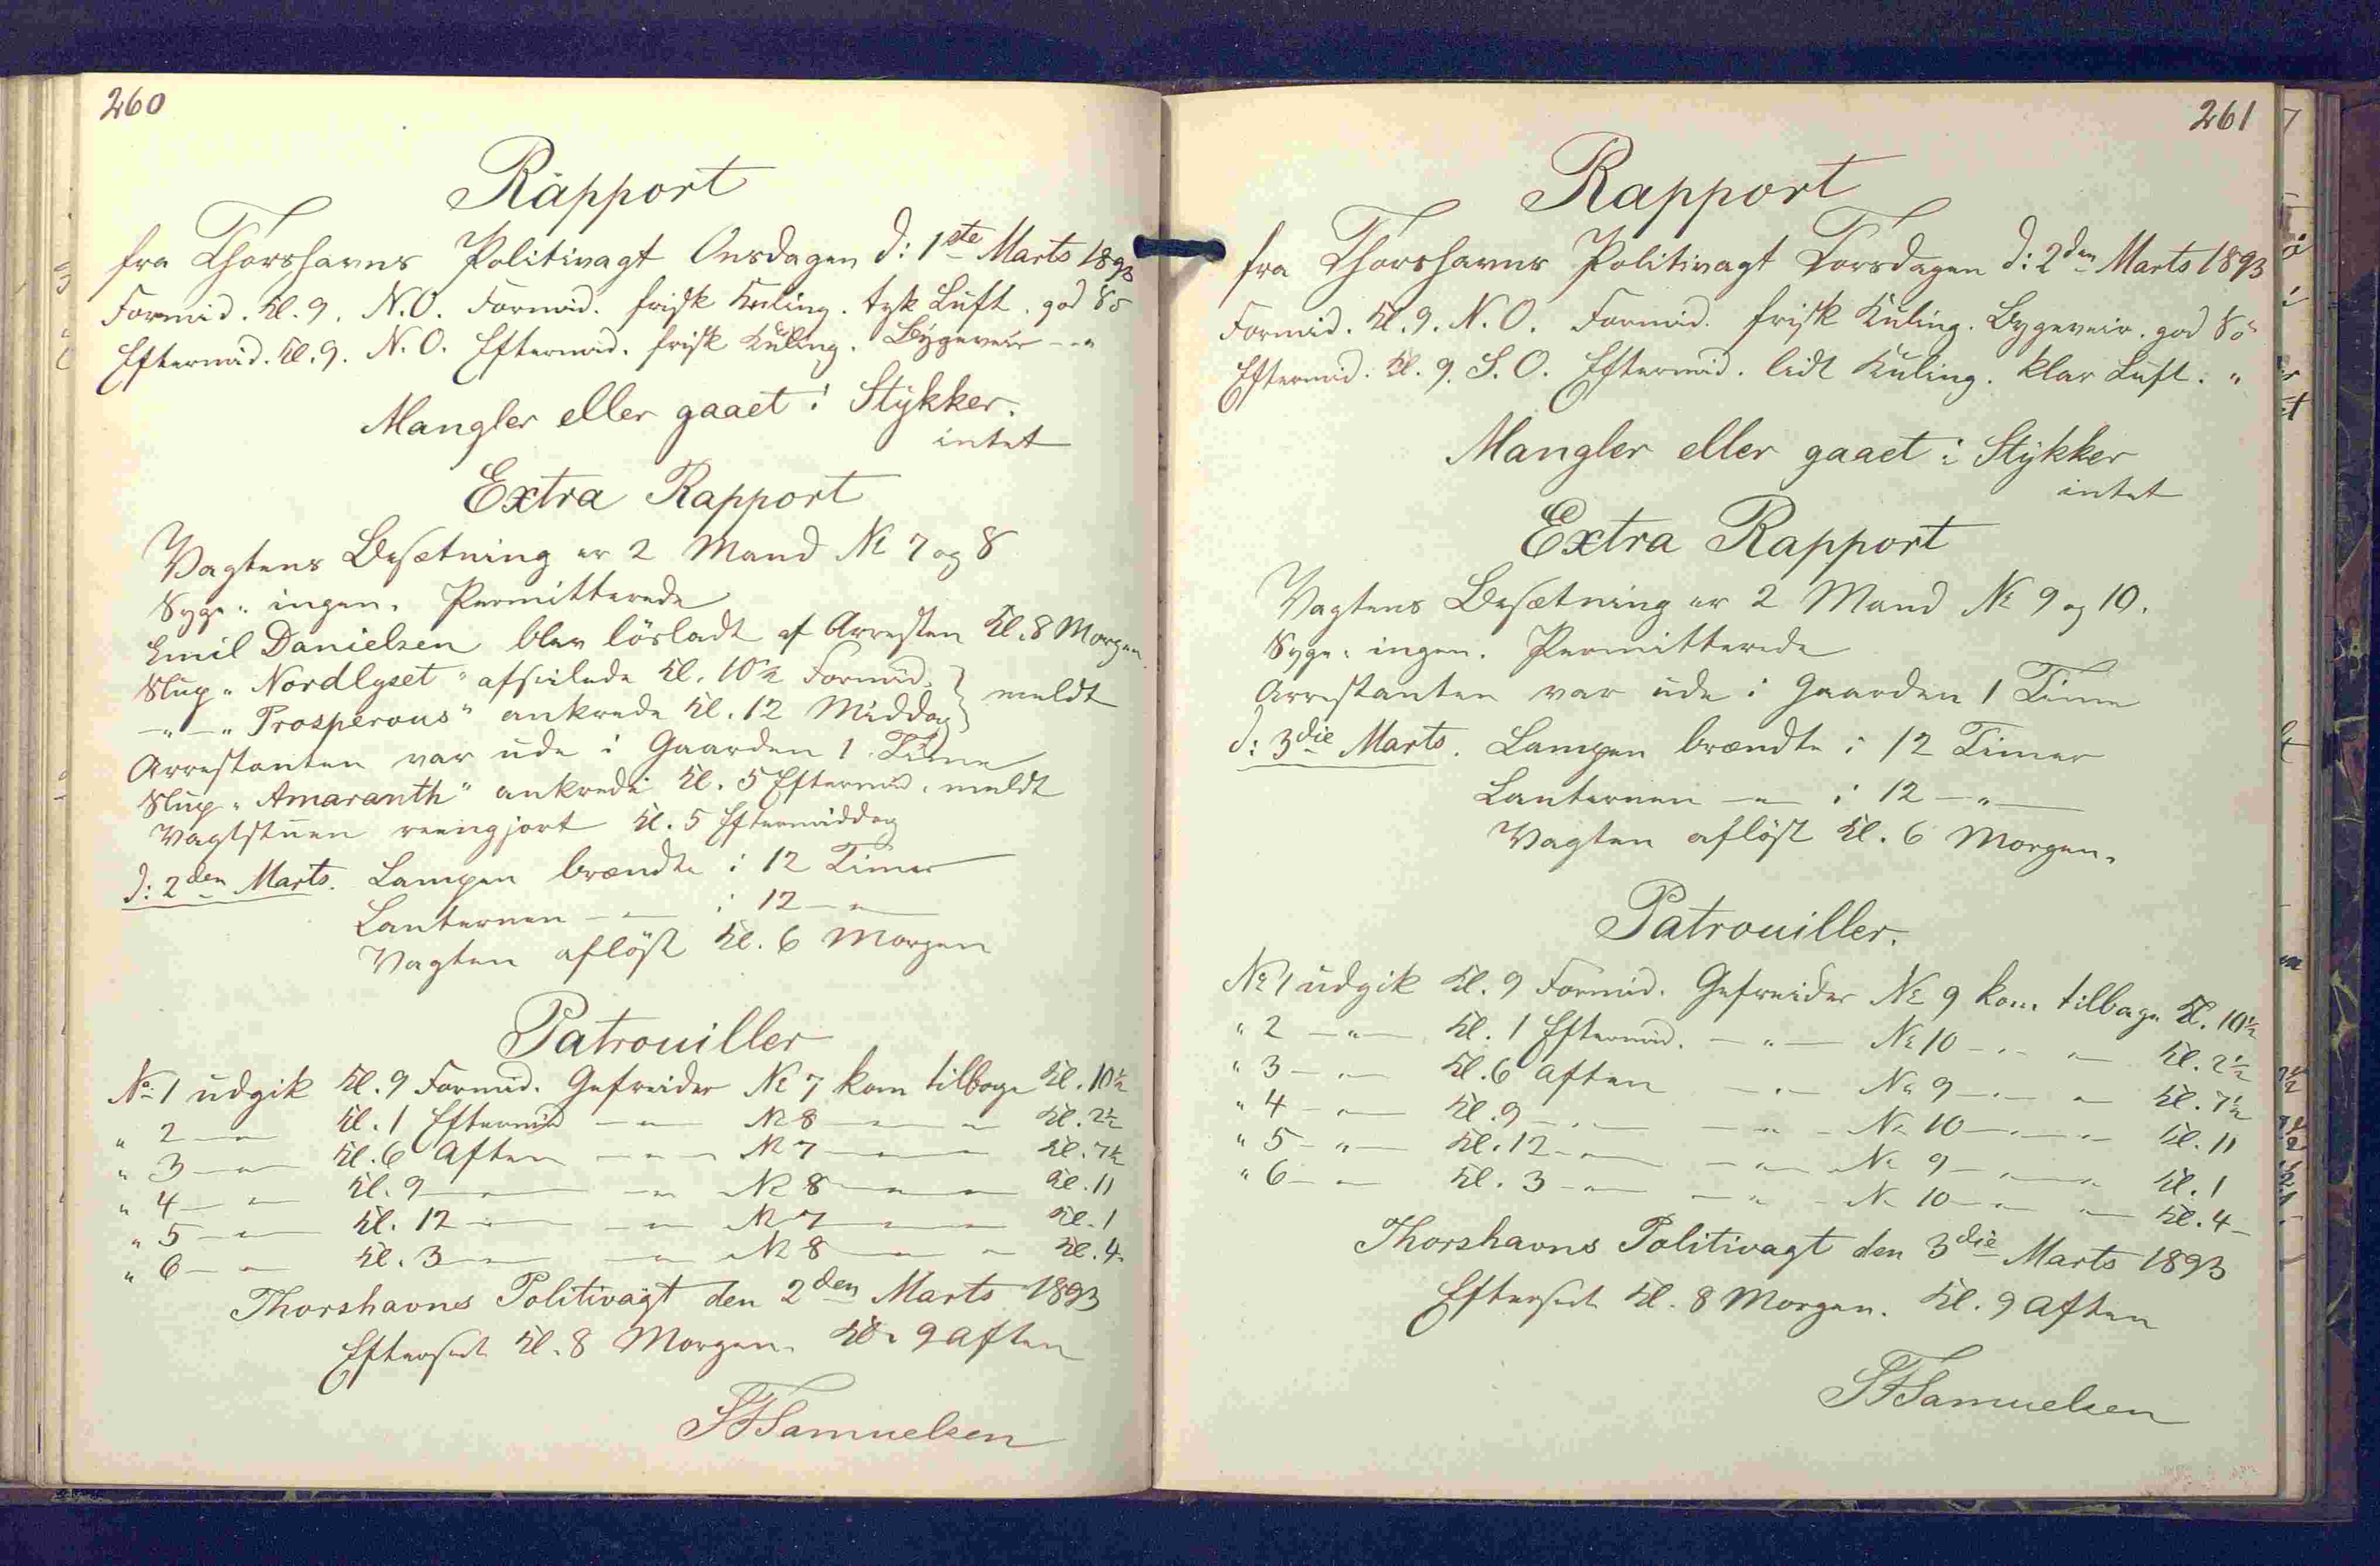 260
Rapport
fra Thorshavns Politivagt Onsdagen d: 1ste Marts 1893
Formid. Kl. 9. N.O. Formid. frisk Kuling. tyk Luft. god Sö
Eftermid. Kl. 9. N.O. Eftermid. frisk Kuling. Bygeveir - - "
Mangler eller gaaet i Stykker.
intet
Extra Rapport
Vagtens Besætning er 2 Mand No 7 og 8
Syge " ingen. Permitterede
Emil Danielsen blev lösladt af Arresten Kl. 8 Morgen.
Slup "Nordlyset" afseilede Kl. 10½ Formid. } meldt
— " — "Prosperous" ankrede Kl. 12 Middag }
Arrestanten var ude i Gaarden 1 Time
Slup "Amaranth" ankrede Kl. 5 Eftermid. meldt
Vagtstuen reengjort Kl. 5 Eftermiddag
d: 2den Marts. Lampen brændte i 12 Timer
Lanternen — " — i 12 — " —
Vagten aflöst Kl. 6 Morgen
Patrouiller
No 1 udgik Kl. 9 Formid. Gefreider No 7 kom tilbage Kl. 10½
" 2 — " — Kl. 1 Eftermid — " — No 8 — " — " — Kl. 2½
" 3 — " — Kl. 6 Aften — " — No 7 — " — " — Kl. 7½
" 4 — " — Kl. 9 — " — — " — No 8 — " — " — Kl. 11
" 5 — " — Kl. 12 — " — — " — No 7 — " — " — Kl. 1
" 6 — " — Kl. 3 — " — — " — No 8 — " — " — Kl. 4
Thorshavns Politivagt den 2den Marts 1893
Efterseet Kl. 8 Morgen. Kl. 9 Aften
Samuelsen
261
Rapport
fra Thorshavns Politivagt Torsdagen d: 2den Marts 1893
Formid. Kl. 9. N.O. Formid. frisk Kuling. Bygeveir. god Sö
Eftermid. Kl. 9. S.O. Eftermid. lidt Kuling. klar Luft. "
Mangler eller gaaet i Stykker
intet
Extra Rapport
Vagtens Besætning er 2 Mand No 9 og 10.
Syge: ingen. Permitterede
Arrestanten var ude i Gaarden 1 Time
d: 3die Marts. Lampen brændte i 12 Timer
Lanternen — " — i 12 — " —
Vagten aflöst Kl. 6 Morgen.
Patrouiller.
No 1 udgik Kl. 9 Formid. Gefreider No 9 kom tilbage Kl. 10½
" 2 — " — Kl. 1 Eftermid. — " — No 10 — " — " — Kl. 2½
" 3 — " — Kl. 6 Aften — " — No 9 — " — " — Kl. 7½
" 4 — " — Kl. 9 — " — — " — No 10 — " — " — Kl. 11
" 5 — " — Kl. 12 — " — — " — No 9 — " — " — Kl. 1
" 6 — " — Kl. 3 — " — — " — No 10 — " — " — Kl. 4
Thorshavns Politivagt den 3die Marts 1893
Efterseet Kl. 8 Morgen. Kl. 9 Aften
Samuelsen